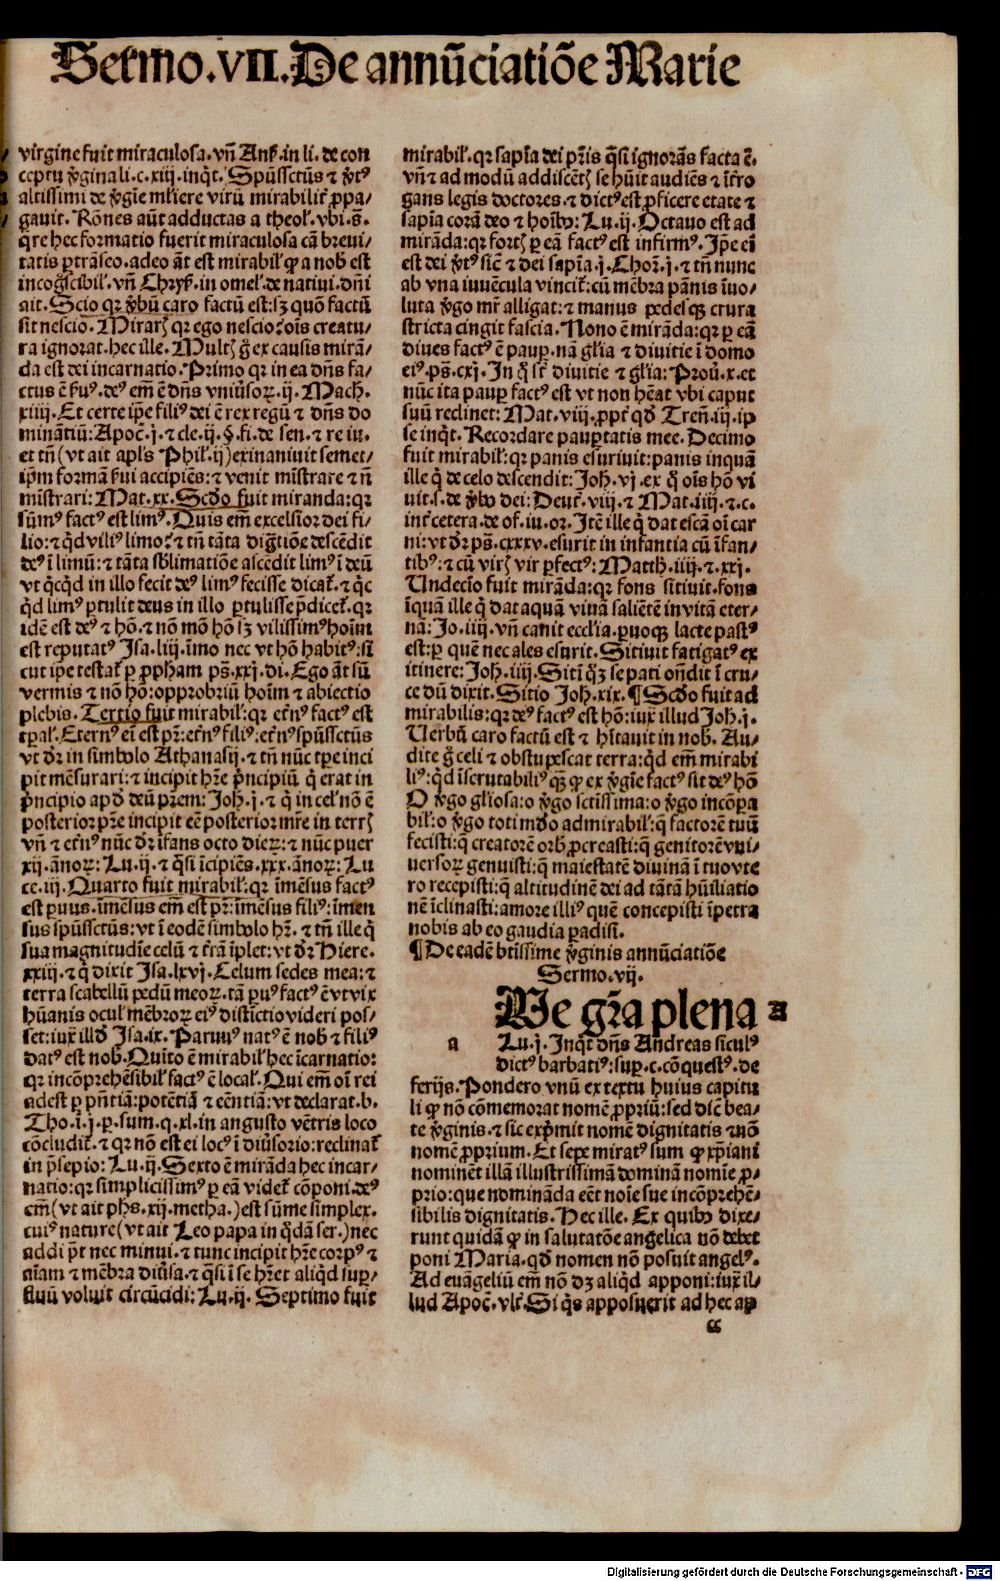 Sermo.VII.De annūciatiōe Marie
virgine fuit miraculosa.vñ Ans̄.in li.de con
ceptu ꝟginali.c.xiij.inqͭ. Spūssctūs ⁊ ꝟtꝰ
altissimi de ꝟgīe ml̄iere virū mirabilit̉ ꝓpa⸗
gauit. Rōnes aūt adductas a theol̉.vbi.s̄.
q̄re hec formatio fuerit miraculosa cā breui⸗
tatis ꝑtrāseo.adeo āt est mirabil̉ ꝙ a nob̉ est
incogscibil̉.vñ Chrys̉.in omel̉.de natiui.dn̄i
ait. Scio qꝛ ꝟbū caro factū est:sꝫ quō factū
sit nescio. Miraris qꝛ ego nescio:oīs creatu⸗
ra ignorat.hec ille. Multis g̉ ex causis mirā⸗
da est dei incarnatio. Primo qꝛ in ea dn̄s fa⸗
ctus ē ẜuꝰ.deꝰ em̄ ē dn̄s vniūsoꝝ.ij. Mach.
xiiij. Et certe ip̄e filiꝰ dei ē rex regū ⁊ dn̄s do
minātiū: Apoc̄.j.⁊ cle.ij.§.fi.de sen.⁊ re iu.
et tn̄ (vt ait apl̄s Phil̉.ij)exinaniuit semet⸗
ip̄m formā ẜui accipiēs:⁊ venit mīstrare ⁊ n̄
mīstrari: Mat.xx. Scd̄o fuit miranda:qꝛ
sūmꝰ factꝰ est limꝰ. Quis em̄ excelsior dei fi⸗
lio:⁊ qd̉ viliꝰ limo:⁊ tn̄ tāta dig̉tiōe descēdit
deꝰ ī limū:⁊ tāta sb̉limatiōe ascēdit limꝰ ī deū
vt qͥcqd̉ in illo fecit deꝰ limꝰ fecisse dicat̉.⁊ qͥc
qd̉ limꝰ ꝑtulit deus in illo ꝑtulisse p̄dicet̉.qꝛ
idē est deꝰ ⁊ hō.⁊ nō mō hō sꝫ vilissimꝰ hoīm
est reputatꝰ Isa.liij.īmo nec vt hō habitꝰ:si
cut ip̄e testat̉ ꝑ ꝓpham ps̄.xxj.di. Ego āt sū
vermis ⁊ nō hō:opprobriū hoīm ⁊ abiectio
plebis. Tertio fuit mirabil̉:qꝛ et̉nꝰ factꝰ est
tꝑal̉. Eternꝰ ei est pr̄:et̉nꝰ filiꝰ:et̉nꝰ spūssctūs
vt dr̄ in simbolo Athanasij.⁊ tn̄ nūc tꝑe inci
pit mēsurari:⁊ incipit hr̄e pͥncipiū qͥ erat in
pͥncipio apd̉ deū pr̄em: Joh̉.j.⁊ qͥ in cel̉ nō ē
posterior pr̄e incipit eē posterior mr̄e in terris
vñ ⁊ et̉nꝰ nūc dr̄ īfans octo dieꝝ:⁊ nūc puer
xij.ānoꝝ: Lu.ij.⁊ qͣsi īcipiēs.xxx.ānoꝝ: Lu
ce.iij. Quarto fuit mirabil̉:qꝛ īmēsus factꝰ
est ꝑuus.īmēsus em̄ est pr̄:īmēsus filiꝰ:īmen
sus spūssctūs:vt ī eodē simbolo hr̄.⁊ tn̄ ille qͥ
sua magnitudīe celū ⁊ t̉rā īplet:vt dr̄ Hiere.
xxiij.⁊ qͥ dixit Isa.lxvj. Celum sedes mea:⁊
terra scabellū pedū meoꝝ.tā ꝑuꝰ factꝰ ē vt vix
hūanis ocul̉ mēbroꝝ eiꝰ distīctio videri pos⸗
set:iux̉ illd̉ Isa.ix. Paruuꝰ natꝰ ē nob̉ ⁊ filiꝰ
datꝰ est nob̉. Quīto ē mirabil̉ hec īcarnatio:
qꝛ incōprehēsibil̉ factꝰ ē local̉. Qui em̄ oī rei
adest ꝑ pn̄tiā:potētiā ⁊ eēntiā:vt declarat.b.
Tho.i.j.p.sum.q.xl.in angusto vētris loco
cōcludit̉.⁊ qꝛ nō est ei locꝰ ī diūsorio:reclinat̉
in p̄sepio: Lu.ij. Sexto ē mirāda hec incar⸗
natio:qꝛ simplicissimꝰ ꝑ eā videt̉ cōponi.deꝰ
em̄ (vt ait phs̄.xij.metha.)est sūme simplex.
cuiꝰ nature (vt ait Leo papa in qͣdā ser.)nec
addi pt̄ nec minui.⁊ tunc incipit hr̄e corpꝰ ⁊
aīam ⁊ mēbra diūsa.⁊ qͣsi ī se hr̄et aliqd̉ suꝑ⸗
fluū voluit circūcidi: Lu.ij. Septimo fuit
mirabil̉.qꝛ sapīa dei pr̄is qͣsi ignorās facta ē.
vñ ⁊ ad modū addiscētis se hūit audiēs ⁊ īt̉ro
gans legis doctores.⁊ dictꝰ est ꝓficere etate ⁊
sapīa corā deo ⁊ hoībꝰ: Lu.ij. Octauo est ad
mirāda:qꝛ fortis ꝑ eā factꝰ est infirmꝰ. Ip̄e ei
est dei ꝟtꝰ sic̄ ⁊ dei sapīa.j. Chor̄.j.⁊ tn̄ nunc
ab vna iuuēcula vincit̉:cū mēbra pānis īuo⸗
luta ꝟgo mr̄ alligat:⁊ manus pedesqꝫ crura
stricta cingit fascia. Nono ē mirāda:qꝛ ꝑ eā
diues factꝰ ē pauꝑ.nā gl̄ia ⁊ diuitie ī domo
eiꝰ.ps̄.cxj. In qͦ sc̉ diuitie ⁊ gl̄ia: Prou̅.x.et
nūc ita pauꝑ factꝰ est vt non hēat vbi caput
suū reclinet: Mat.viij.ꝓpt̉ qd̉ Tren̄.iij.ip
se inqͭ. Recordare pauꝑtatis mee. Decimo
fuit mirabil̉:qꝛ panis esuriuit:panis inquā
ille qͥ de celo descendit: Joh.vj.ex qͦ oīs hō vi
uit.s.de ꝟbo dei: Deut̉.viij.⁊ Mat.iiij.⁊ c.
int̉ cetera.de of.iu.or. Itē ille qͥ dat escā oī car
ni:vt dr̄ ps̄.cxxxv.esurit in infantia cū īfan⸗
tibꝰ:⁊ cū viris vir ꝑfectꝰ: Matth.iiij.⁊ xxj.
Undecīo fuit mirāda:qꝛ fons sitiuit.fons
īquā ille qͥ dat aquā viuā saliētē in vitā eter⸗
nā: Jo.iiij. vñ canit eccl̄ia.ꝑuoqꝫ lacte pastꝰ
est:ꝑ quē nec ales esurit. Sitiuit fatigatꝰ ex
itinere: Joh.iiij. Sitī qͦꝫ se pati on̄dit ī cru⸗
ce dū dixit. Sitio Joh.xix. ¶ Scd̄o fuit ad
mirabilis:qꝛ deꝰ factꝰ est hō:iux̉ illud Joh.j.
Uerbū caro factū est ⁊ hītauit in nob̉. Au⸗
dite g̉ celi ⁊ obstupescat terra:qd̉ em̄ mirabi
liꝰ:qd̉ īscrutabiliꝰ qͣꝫ ꝙ ex ꝟgīe factꝰ sit deꝰ hō
O ꝟgo gl̄iosa:o ꝟgo sctissima:o ꝟgo incōpa
bil̉:o ꝟgo toti mūdo admirabil̉:q̄ factorē tuū
fecisti:q̄ creatorē orbis ꝓcreasti:q̄ genitorē vni⸗
uersoꝝ genuisti:q̄ maiestatē diuinā ī tuo vte
ro recepisti:q̄ altitudinē dei ad tātā hūiliatio
nē īclinasti:amore illiꝰ quē concepisti īpetra
nobis ab eo gaudia padisi.
¶ De eadē btīssime ꝟginis annūciatiōe
Sermo.vij.
Ue gr̄a plena a
a Lu.j. Inqͭ dn̄s Andreas siculꝰ
dictꝰ barbatiꝰ:suꝑ.c.cōquestꝰ.de
ferijs. Pondero vnū ex textu huius capitu
li ꝙ nō cōmemorat nomē ꝓpriū:sed dic̄ bea⸗
te ꝟginis.⁊ sic exp̄mit nomē dignitatis ⁊ nō
nomē ꝓprium. Et sepe miratꝰ sum ꝙ xp̄iani
nominēt illā illustrissimā dominā nomīe ꝓ⸗
prio:que nomināda eēt noīe sue incōprehē⸗
sibilis dignitatis. Hec ille. Ex quibꝰ dixe⸗
runt quidā ꝙ in salutatōe angelica nō debet
poni Maria.qd̉ nomen nō posuit angelꝰ.
Ad euāgeliū em̄ nō dꝫ aliqd̉ apponi:iux̉ il⸗
lud Apoc̄.vlt̉. Si qͥs apposuerit ad hec ap
Digitalisierung gefördert durch die Deutsche Forschungsgemeinschaft - DFG